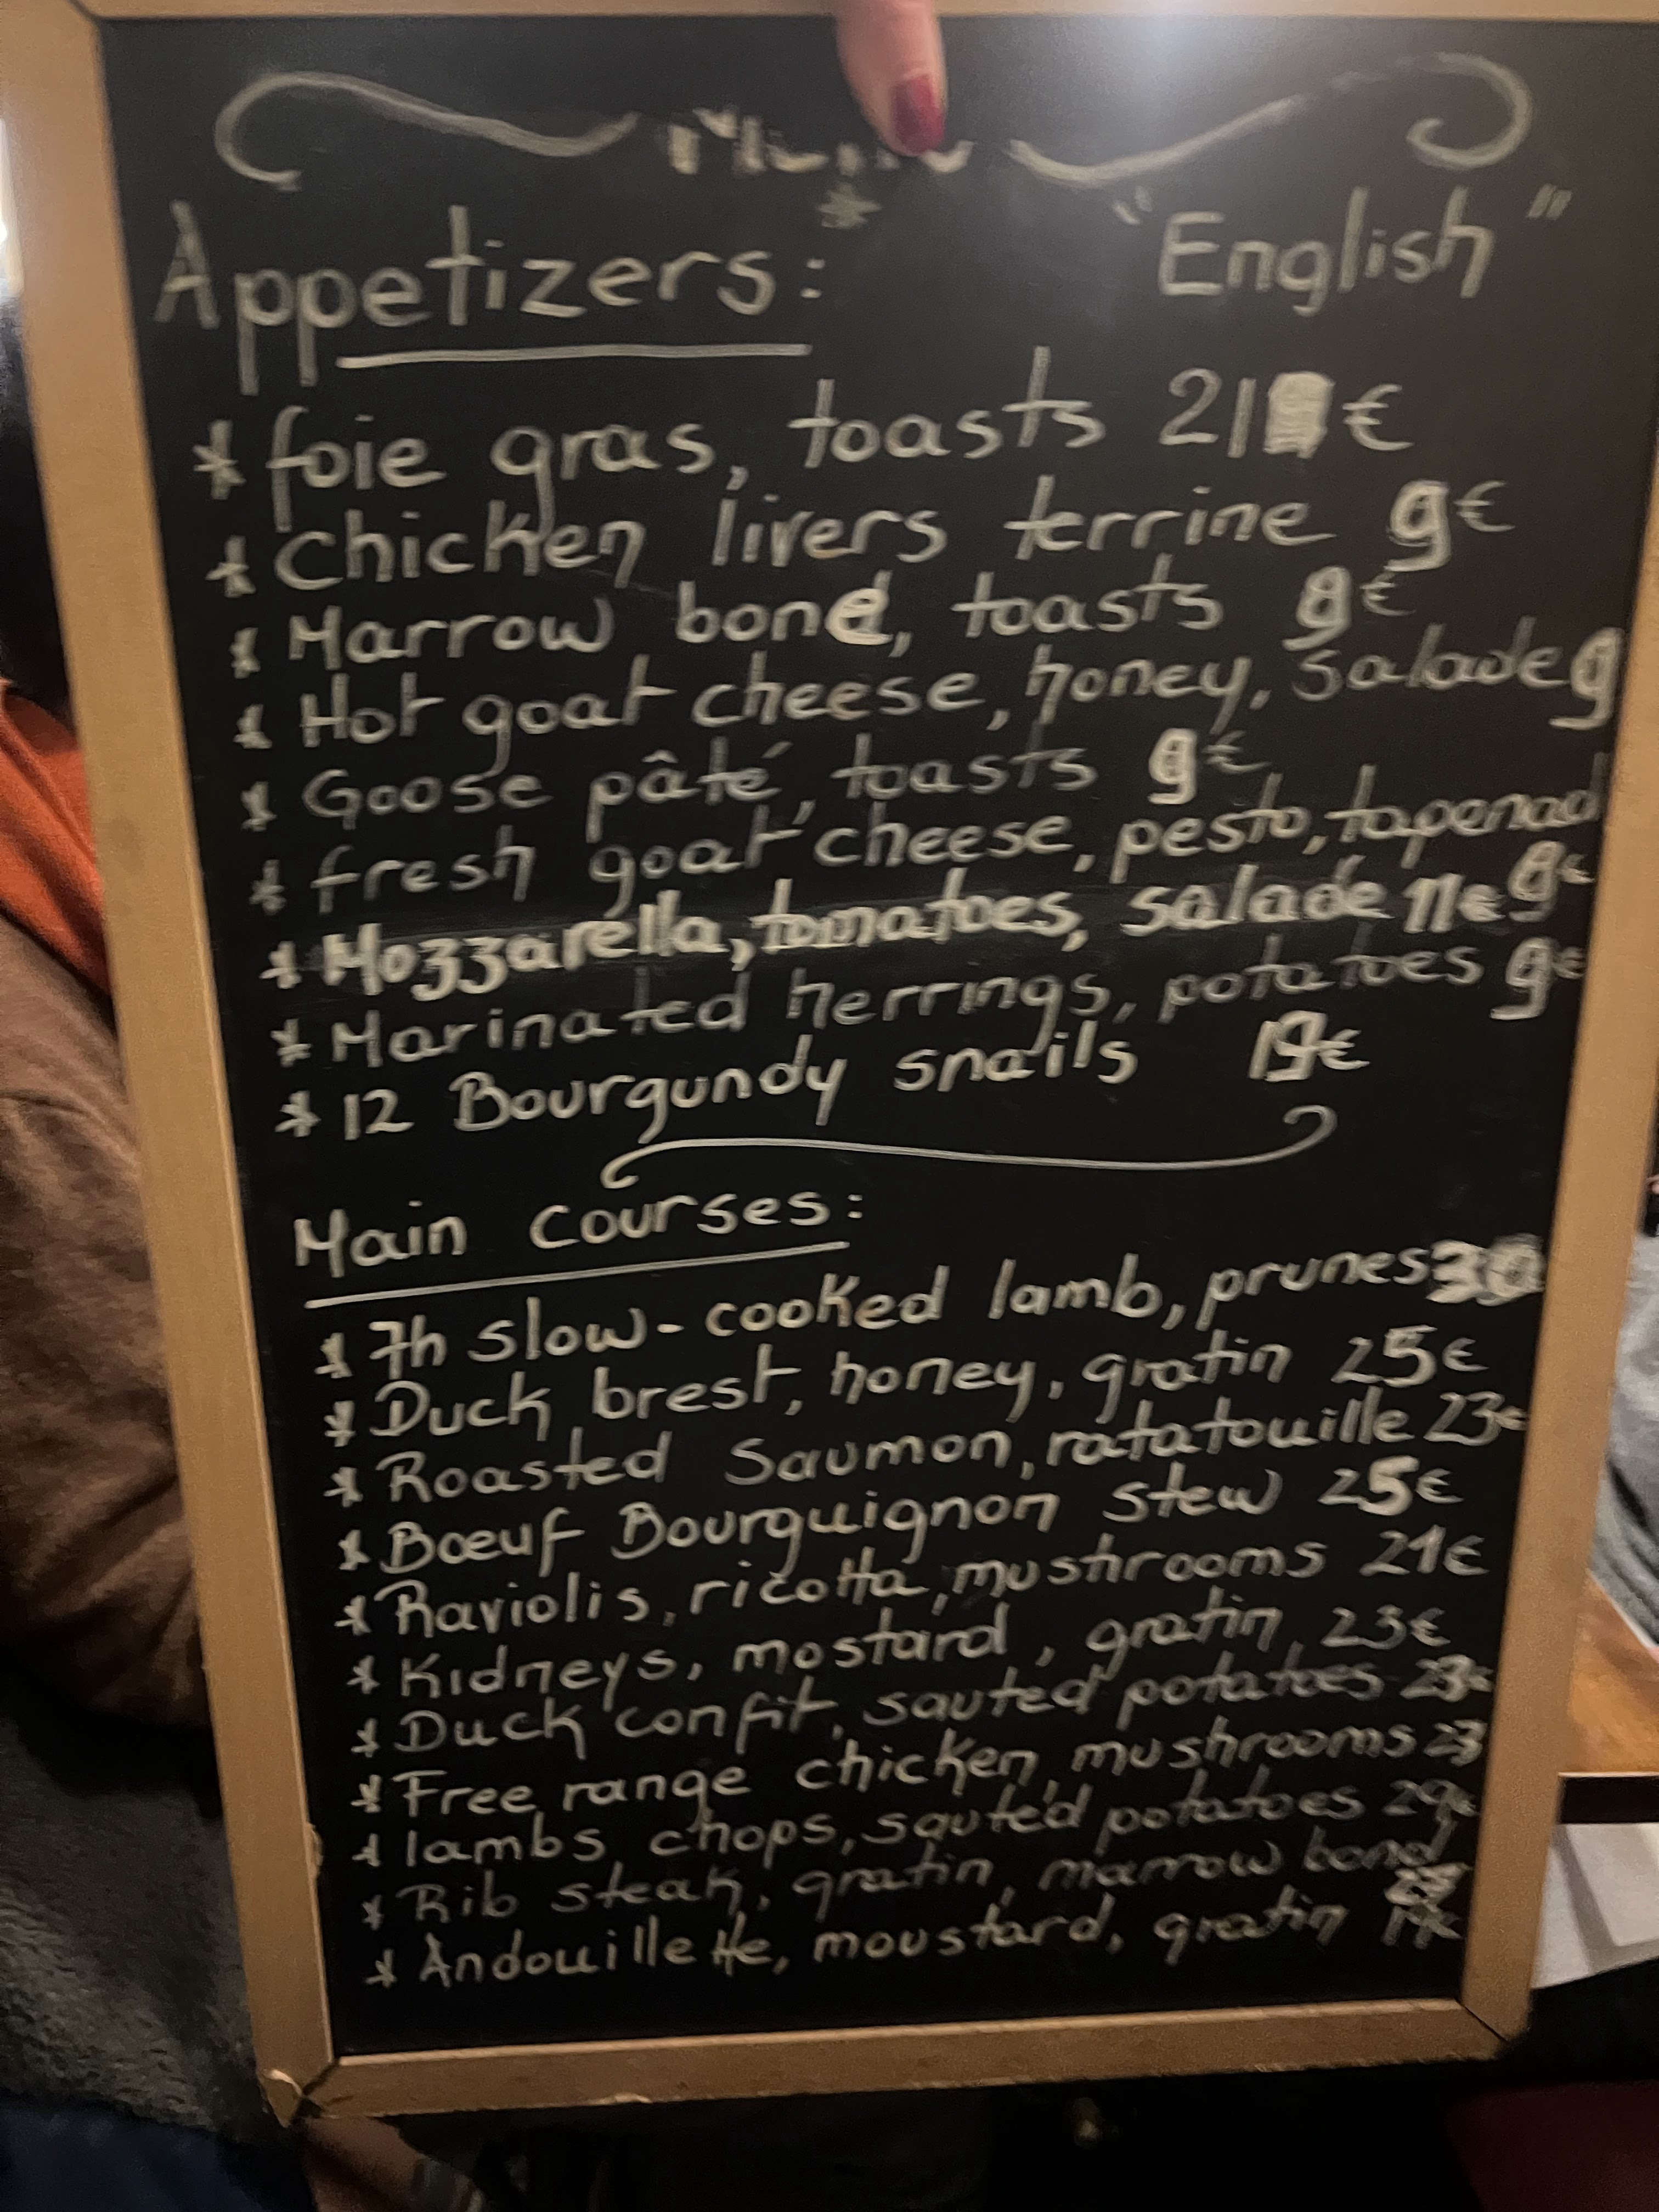 Menu
"English"
Appetizers:
* foie gras, toasts 21 €
* Chicken livers terrine 9€
* Marrow bone, toasts 9€
* Hot goat cheese, honey, salade 9
* Goose pâté, toasts 9€
* fresh goat cheese, pesto, tapenad
9€
* Mozzarella, tomatoes, salade 11€
* Marinated herrings, potatoes 9€
* 12 Bourgundy snails 19€
Main courses:
* 7h slow-cooked lamb, prunes 30
* Duck brest, honey, gratin 25€
* Roasted Saumon, ratatouille 23€
* Bœuf Bourguignon stew 25€
* Raviolis, ricotta, mushrooms 21€
* Kidneys, mostard, gratin, 23€
* Duck confit, sauted potatoes 23€
* Free range chicken, mushrooms 23
* lambs chops, sauted potatoes 29€
* Rib steak, gratin, marrow bond
* Andouillette, moustard, gratin